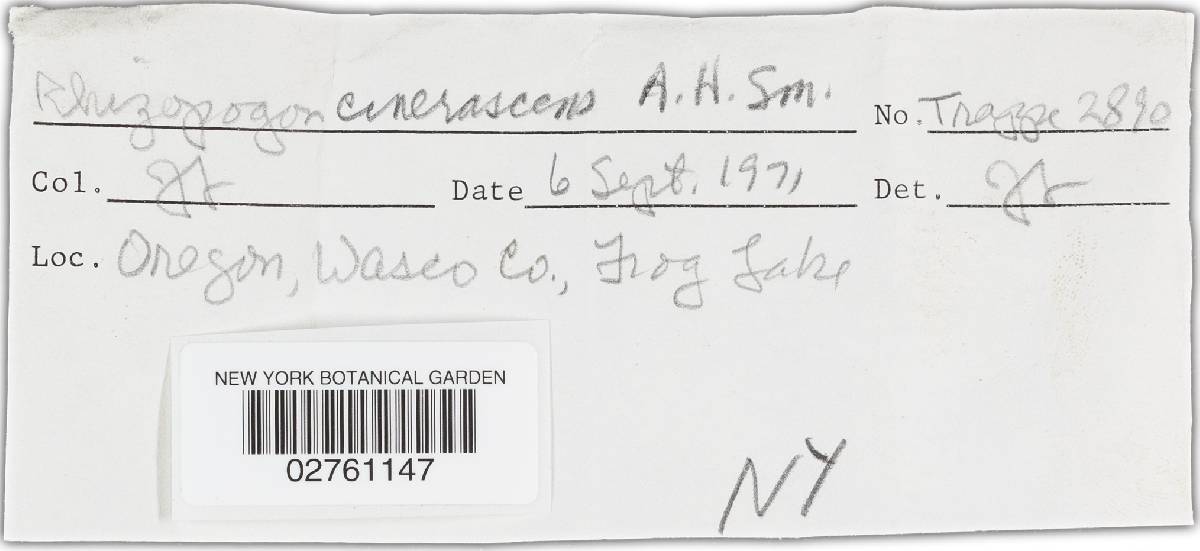 Rhizopogon cinerascens A.H. Sm. No. Trappe 2890
Col. JT Date 6 Sept. 1971 Det. JT
Loc. Oregon, Wasco Co., Frog Lake
NEW YORK BOTANICAL GARDEN
02761147
NY